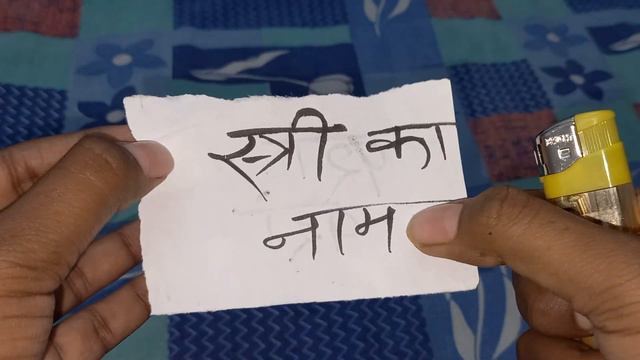 स्त्री का
नाम